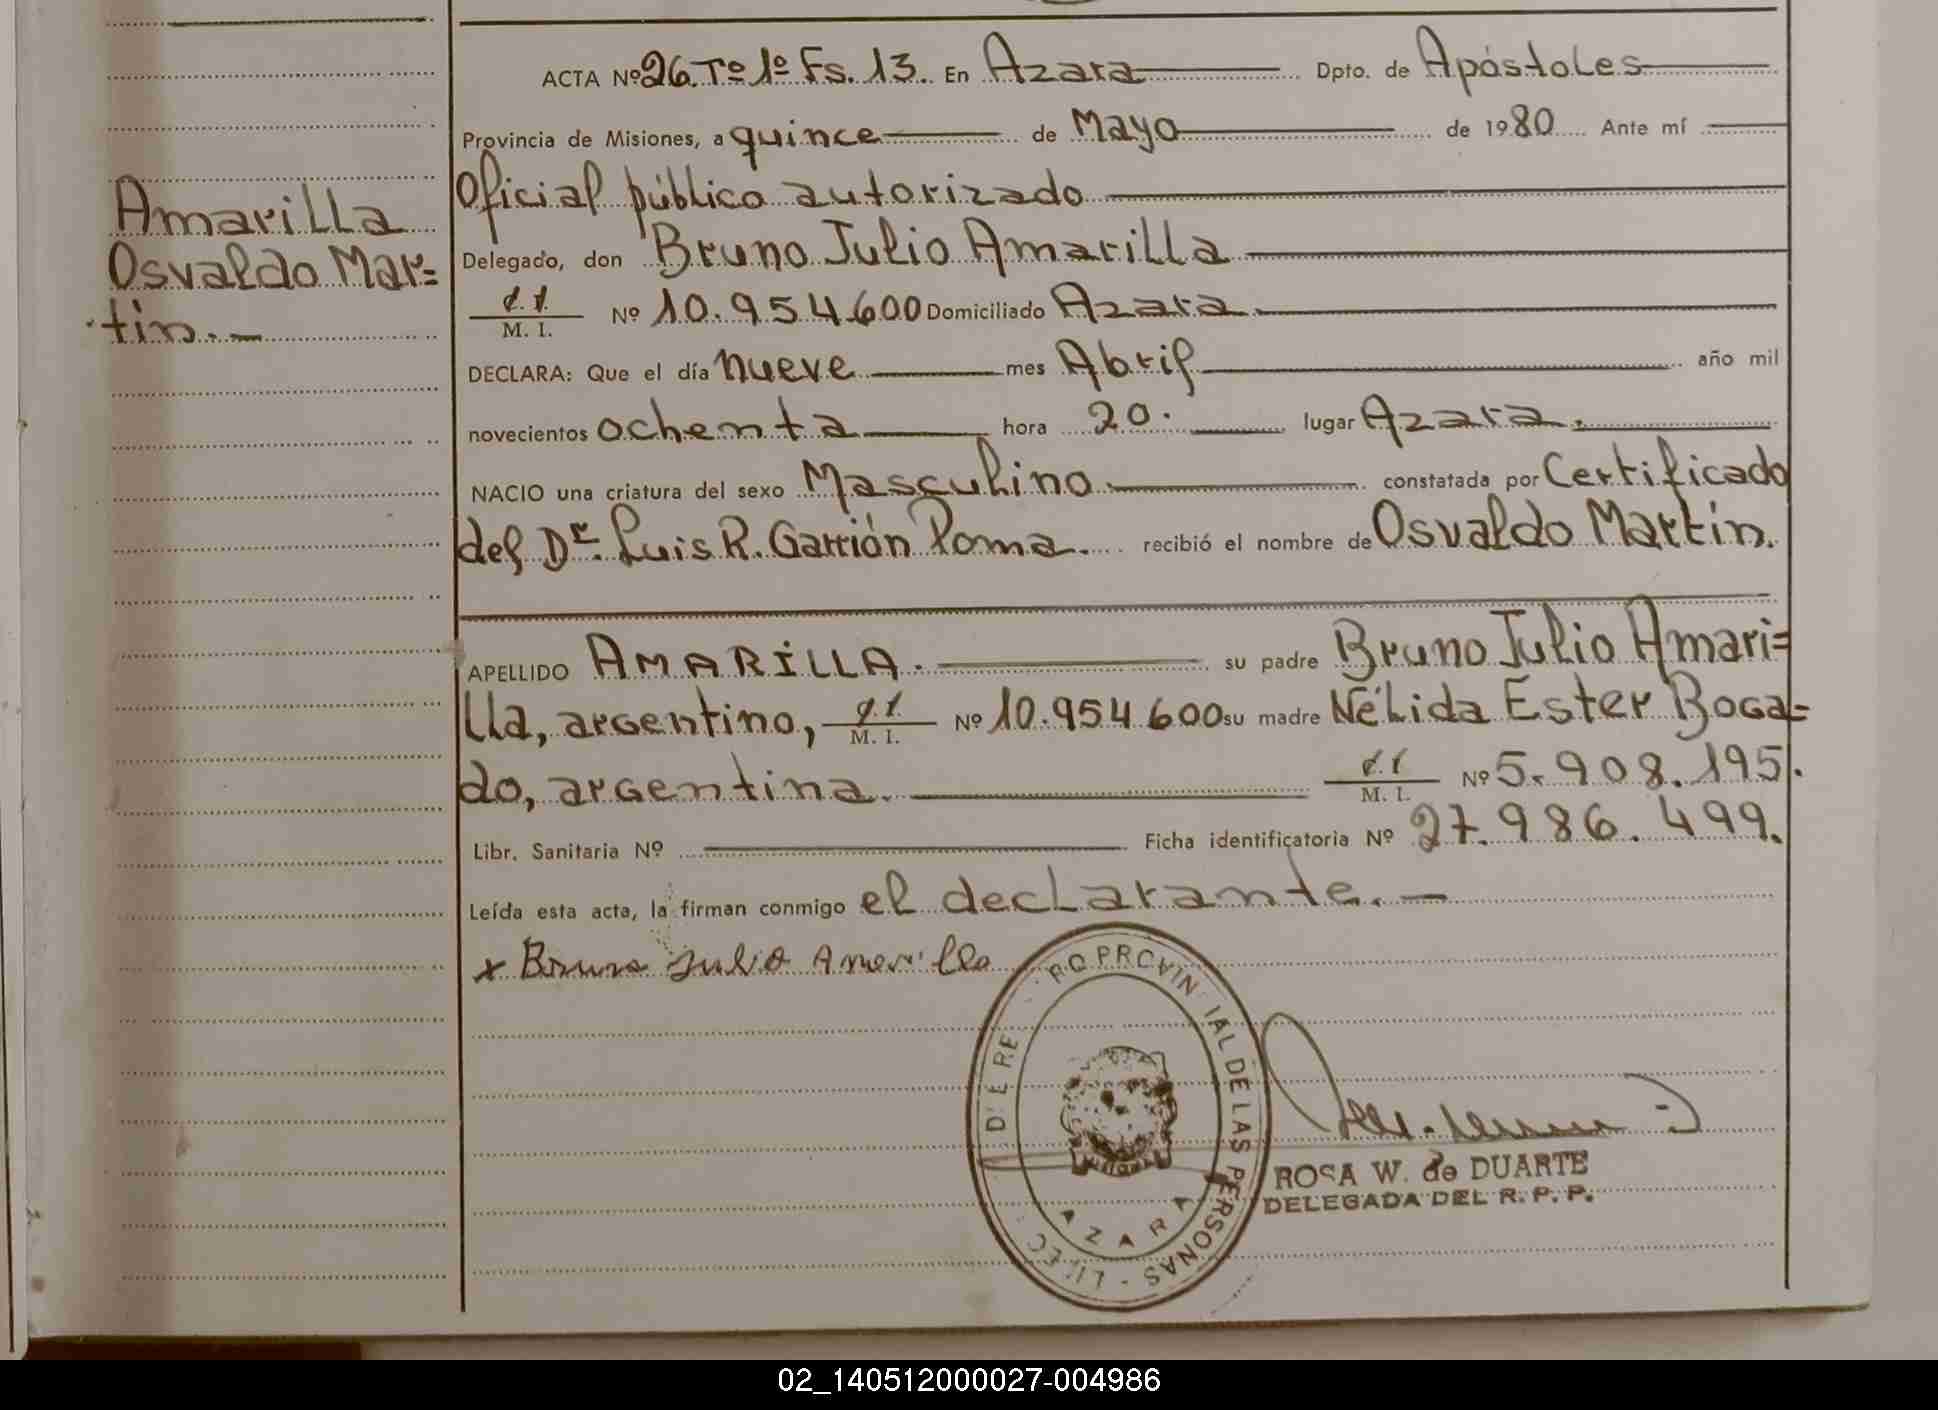 ACTA Nº 26 Tº 1º Fs. 13. En Azara Dpto. de Apóstoles
Provincia de Misiones, a quince de Mayo de 1980 Ante mí
Oficial público autorizado
Amarilla
Osvaldo Mar=
tin.-
Delegado, don Bruno Julio Amarilla
M. I. Nº 10.954.600 Domiciliado Azara.
DECLARA: Que el día nueve mes Abril año mil
novecientos ochenta hora 20. lugar Azara.
NACIO una criatura del sexo Masculino constatada por Certificado
del Dr. Luis R. Garrión Poma. recibió el nombre de Osvaldo Martín.
APELLIDO AMARILLA. su padre Bruno Julio Amari=
lla, argentino, M. I. Nº 10.954.600 su madre Nélida Ester Boga=
do, argentina. M. I. Nº 5.908.195.
Libr. Sanitaria Nº Ficha identificatoria Nº 27.986.499.
Leída esta acta, la firman conmigo el declarante.-
x Bruno Julio Amarilla
RO PROVIN IAL DE LAS PERSONAS -
AZARA
ROSA W. de DUARTE
DELEGADA DEL R. P. P.
02_140512000027-004986